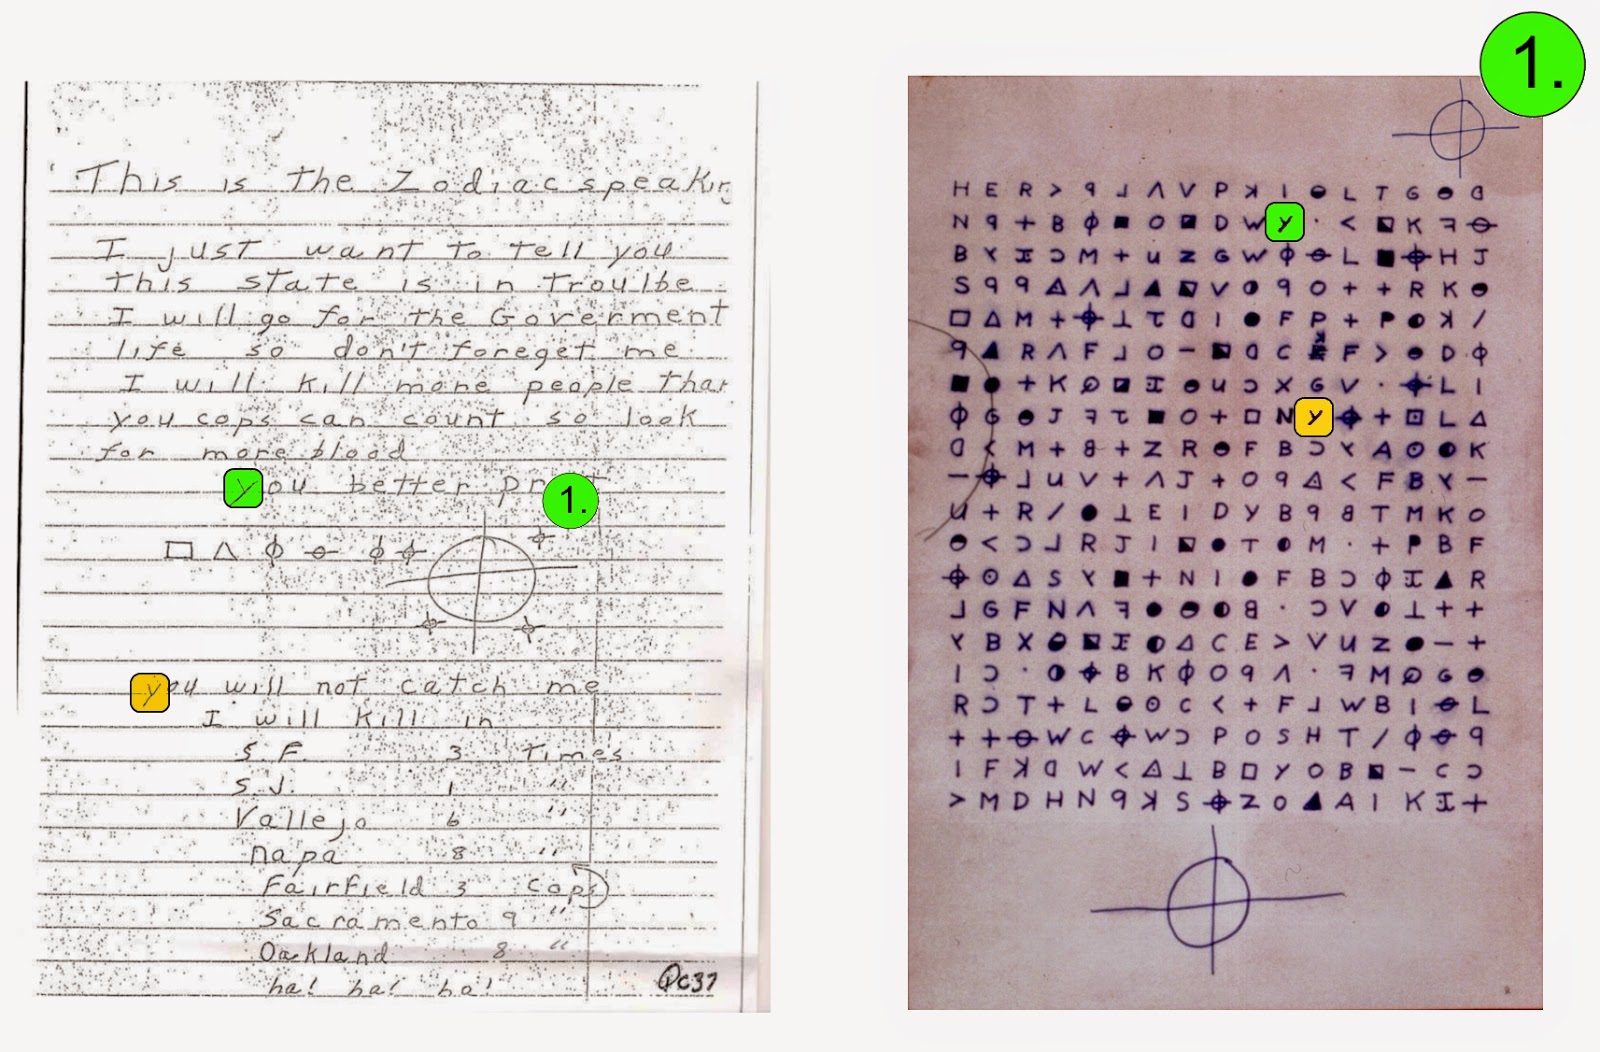 1.
This is the Zodiac speakin
I just want to tell you
this state is in troulbe
I will go for the Goverment
life so don't foreget me
I will kill more people than
you cops can count so look
for more blood
you better pr
1.
□ Λ ⌽ ⊖ ⌽ ⌖
you will not catch me
I will kill in
S.F. 3 Times
S.J. 1 "
Vallejo 6 "
napa 8 "
Fairfield 3 cops
Sacramento 9 "
Oakland 8 "
ha! ha! ha!
Qc37
H E R > ꟼ ⅃ Λ V P ꓘ I ◒ L T G ◒ ᗡ
N ꟼ + B ⌽ ■ O ◪ D W Y · < ◪ K ꟻ ⊖
B Y Ɪ Ɔ M + U Z G W ⌽ ⊖ L ■ ⌖ H J
S ꟼ ꟼ Δ Λ ⅃ ▲ ◪ V ◑ ꟼ O + + R K ◒
□ Δ M + ⌖ ⊥ τ ᗡ I ● F P + P ◐ ꓘ /
ꟼ ▲ R Λ F ⅃ O – ◪ ᗡ C F > ◒ D ⌽
■ ● + K ⊘ ◪ Ɪ ◒ U Ɔ X G V · ⌖ L I
⌽ G ◒ J ꟻ τ ■ O + □ N Y ⌖ + ⊡ L Δ
ᗡ < M + 8 + Z R ◒ F B Ɔ Y A ⊙ ◐ K
– ⌖ ⅃ U V + Λ J + O ꟼ Δ < F B Y –
U + R / ● ⊥ E I D Y B ꟼ 8 T M K O
◒ < Ɔ ⅃ R J I ◪ ● T ◐ M · + P B F
⌖ ⊙ Δ S Y ■ + N I ● F B Ɔ ⌽ Ɪ ▲ R
⅃ G F N Λ ꟻ ● ◒ ◐ 8 · Ɔ V ◐ ⊥ + +
Y B X ◒ ◪ Ɪ ◐ Δ C E > V U Z ● – +
I Ɔ · ◑ ⌖ B K ⌽ O ꟼ Λ · ꟻ M ⊘ G ◒
R Ɔ T + L ◒ ⊙ C < + F ⅃ W B I ⊖ L
+ + ⊖ W C ⌖ W Ɔ P O S H T / ⌽ ⊖ ꟼ
I F ꓘ ᗡ W < Δ ⊥ B □ Y O B ◪ – C Ɔ
> M D H N ꟼ ꓘ S ⌖ Z O ▲ A I K Ɪ +